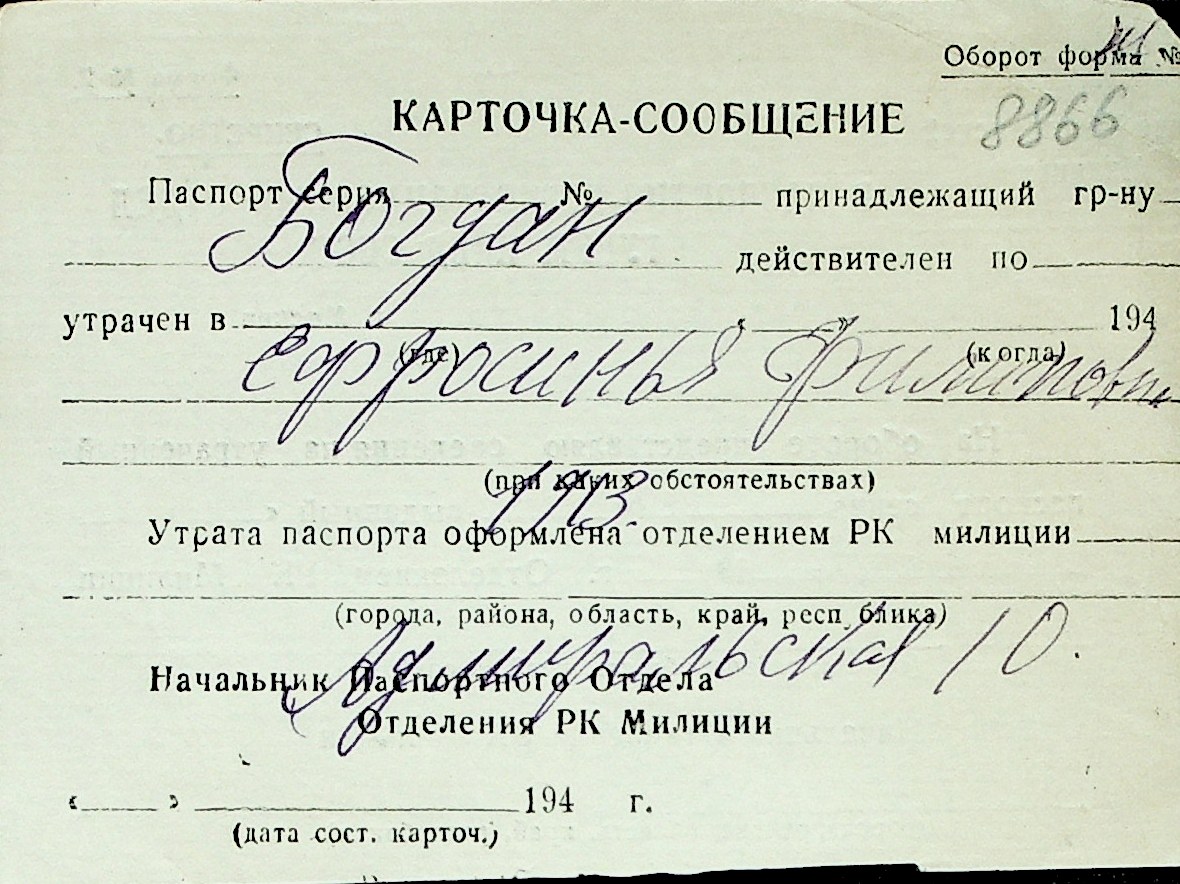 Оборот форма №
КАРТОЧКА-СООБЩЕНИЕ 8866
Паспорт серия № принадлежащий гр-ну
Богдан
действителен по
утрачен в « » 194
(где) (когда)
Ефросинья Филиповн
(при каких обстоятельствах)
Утрата паспорта оформлена отделением РК милиции
(города, района, область, край, респ блика)
Адмиральская 10.
Начальник Паспортного Отдела
Отделения РК Милиции
« » 194 г.
(дата сост. карточ.)